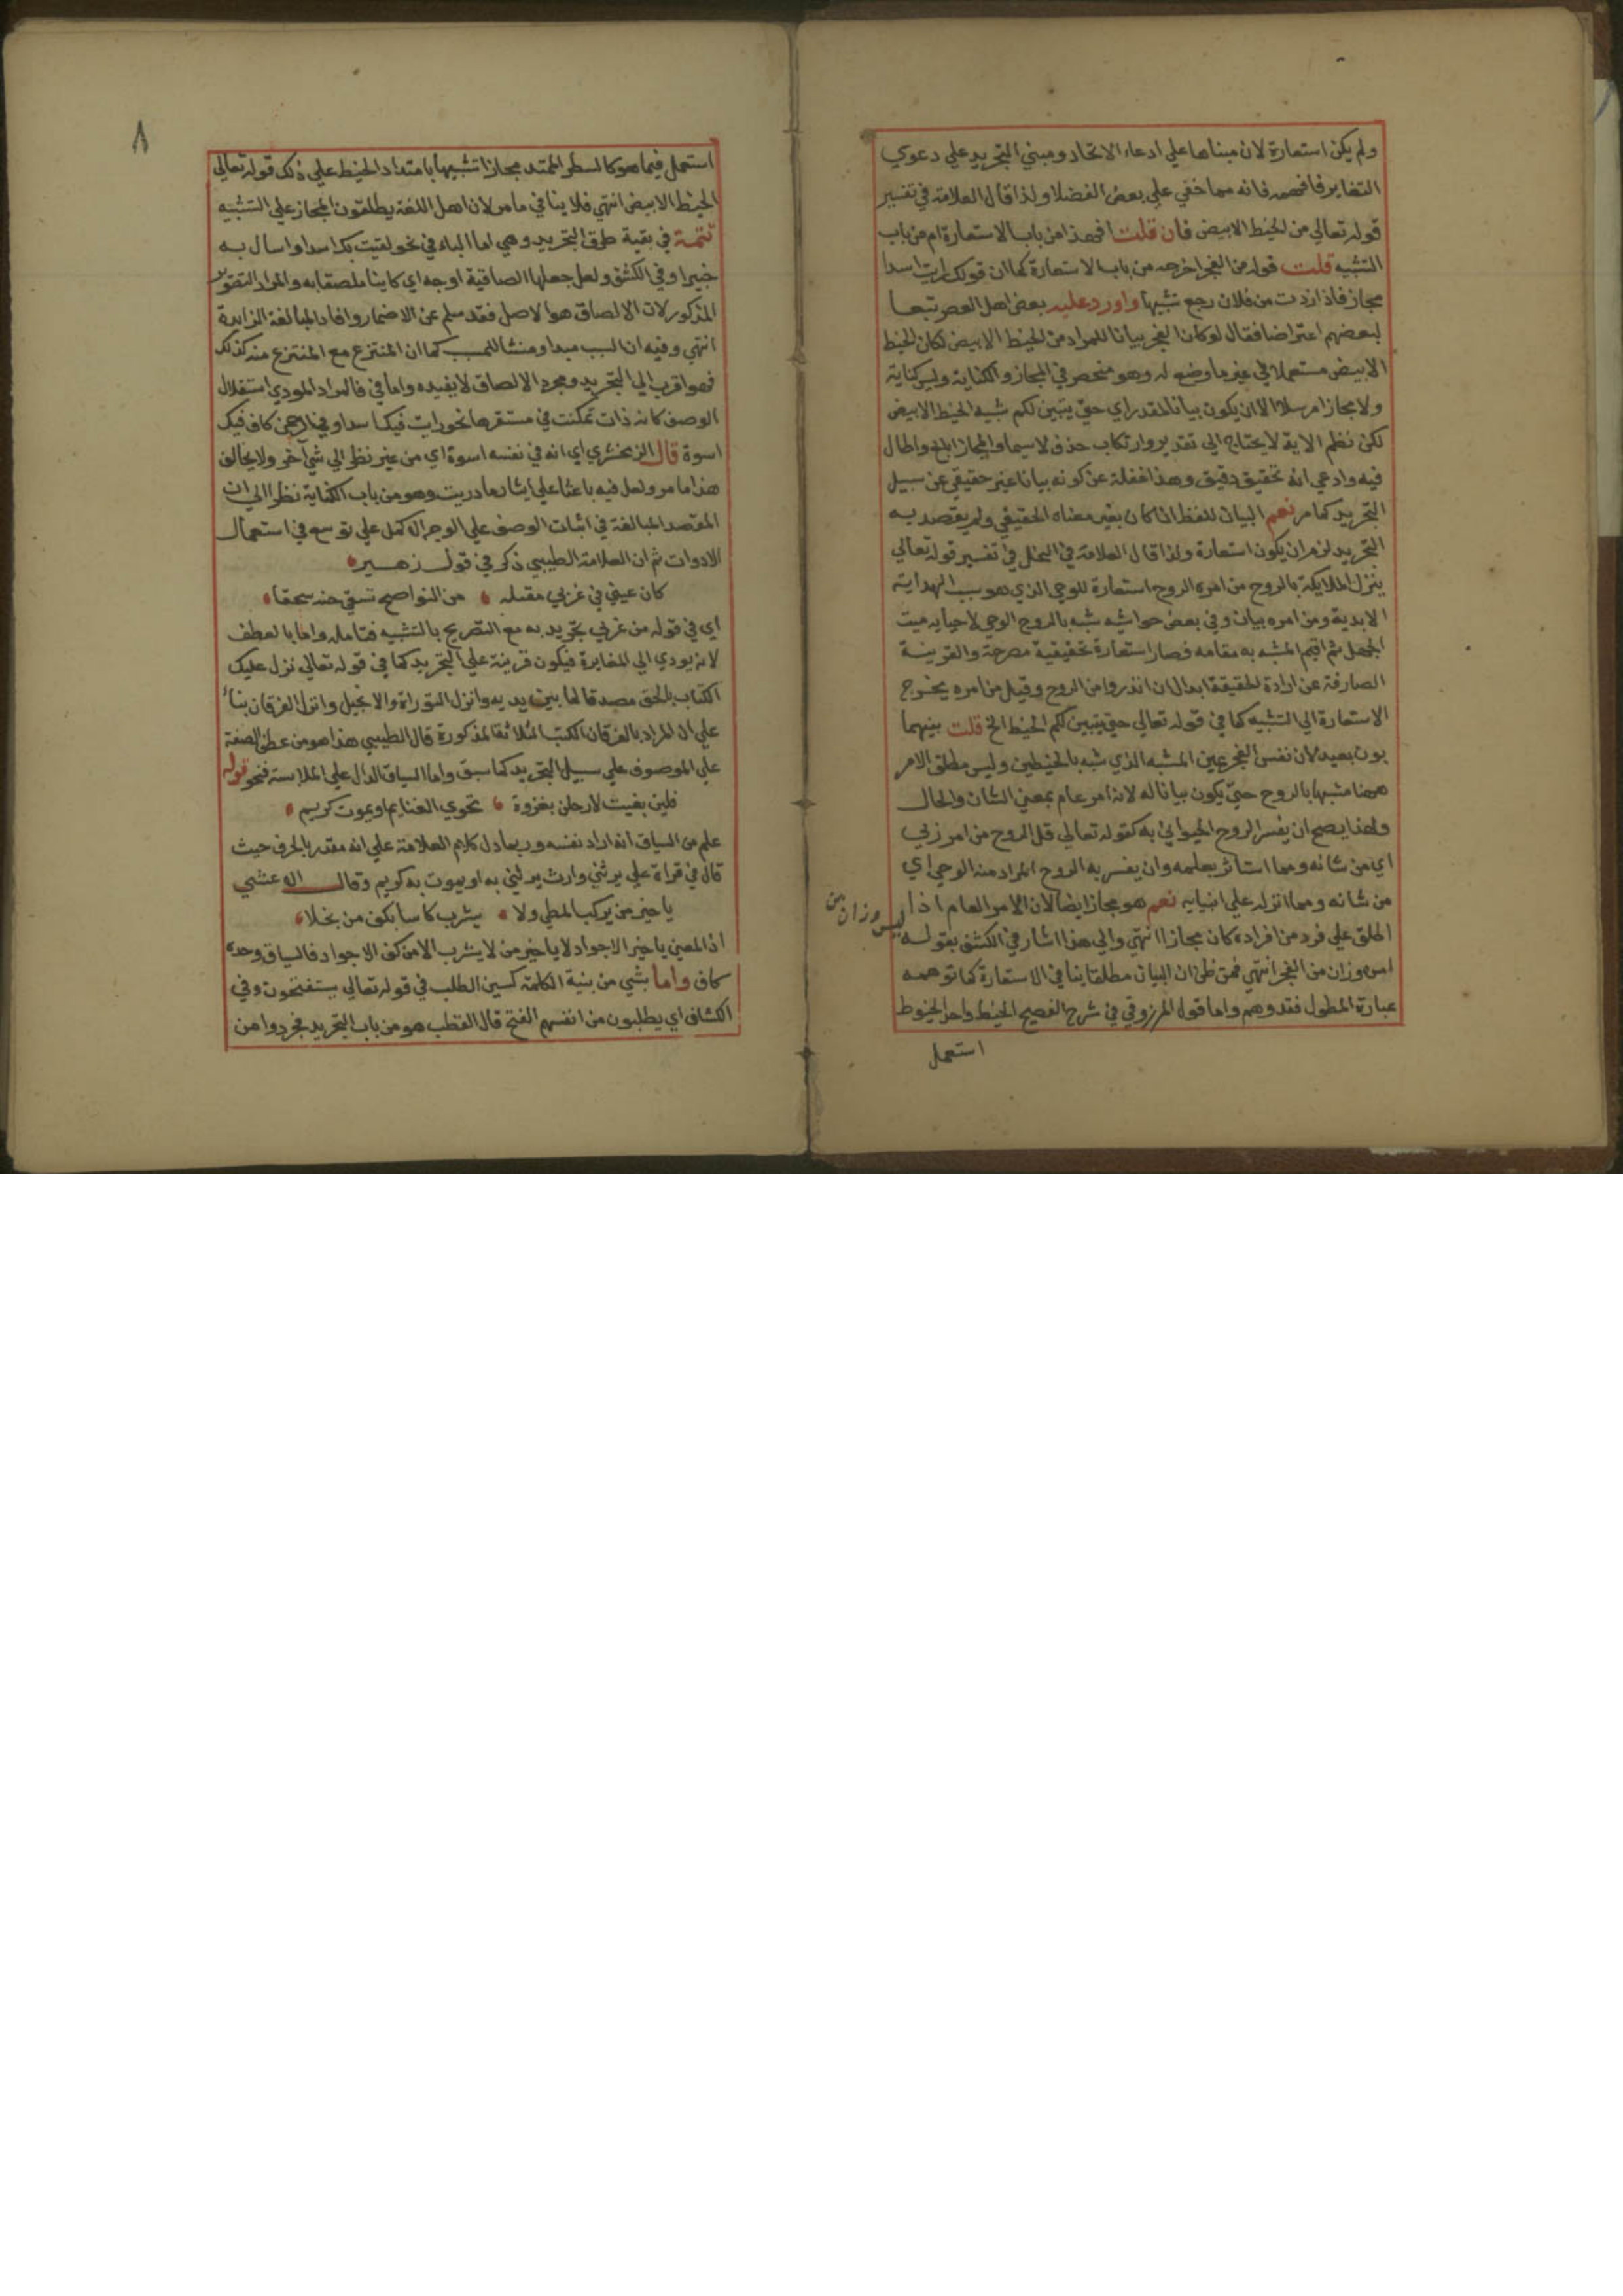 ولم يكن استعارة لان مبناها علي ادعاء الاتحاد ومبني التجريد علي دعوي
التغاير فافهمه فانه مما خفي علي بعض الفضلا ولذا قال العلامة في تفسير
قوله تعالي من الخيط الابيض فان قلت افهذا من باب الاستعارة ام من باب
التشبيه قلت قوله من الفجر اخرجه من باب الاستعارة كما ان قولك رايت اسدا
مجاز فاذا زدت من فلان رجع تشبيها واورد عليه بعض اهل العصر تبعا
لبعضهم اعتراضا فقال لو كان الفجر بيانا للمراد من الخيط الابيض لكان الخيط
الابيض مستعملا في غير ما وضع له وهو منحصر في المجاز والكناية وليس كناية
ولا مجازا مرسلا الا ان يكون بيانا لمقدر اي حتي يتبين لكم شبيه الخيط الابيض
لكن نظم الاية لا يحتاج الي تقدير وارتكاب حذف لا سيما والمجاز ابلغ واطال
فيه وادعي انه تحقيق دقيق وهذا غفلة عن كونه بيانا غير حقيقي عن سبيل
التجريد كما مر نعم البيان للفظ اذا كان بغير معناه الحقيقي ولم يقصد به
التجريد لزم ان يكون استعارة ولذا قال العلامة في النحل في تفسير قوله تعالي
ينزل الملايكة بالروح من امره الروح استعارة للوحي الذي هو سبب الهداية
الابدية ومن امره بيان وفي بعض حواشيه شبه بالروح الوحي لاحيايه ميت
الجهل ثم اقيم المشبه به مقامه فصار استعارة تحقيقية مصرحة والقرينة
الصارفة عن ارادة الحقيقة ابدال ان انذروا من الروح وقيل من امره يخرج
الاستعارة الي التشبيه كما في قوله تعالي حتي يتبين لكم الخيط الخ قلت بينهما
بون بعيد لان نفس الفجر عين المشبه الذي شبه بالخيطين وليس مطلق الامر
ههنا مشبها بالروح حتي يكون بيانا له لانه امر عام بمعني الشان والحال
ولهذا يصح ان يفسر الروح الحيواني به كقوله تعالي قل الروح من امر ربي
اي من شانه ومما استاثر بعلمه وان يفسر به الروح المراد منه الوحي اي
من شانه ومما انزله علي انبيايه نعم هو مجاز ايضا لان الامر العام اذا
اطلق علي فرد من افراده كان مجازا انتهي والي هذا اشار في الكشف بقوله
ليس وزان من
امره وزان من الفجر انتهي فمن ظن ان البيان مطلقا ينافي الاستعارة كما توهمه
عبارة المطول فقد وهم واما قول المرزوقي في شرح الفصيح الخيط واحد الخيوط
استعمل
٨
استعمل فيما هو كالسطر الممتد مجازا تشبيها بامتداد الخيط علي ذلك قوله تعالي
الخيط الابيض انتهي فلا ينافي ما مر لان اهل اللغة يطلقون المجاز علي التشبيه
تتمة في بقية طرق التجريد وهي اما الباء في نحو لقيت بك اسدا واسال به
خبيرا وفي الكشف ولعل جعلها الصاقية اوجه اي كاينا ملصقا به والمراد التصوير
المذكور لان الالصاق هو الاصل فقد سلم عن الاضمار وافاد المبالغة الزايدة
انتهي وفيه ان السبب مبدا ومنشا للمسبب كما ان المنتزع مع المنتزع منه كذلك
فهو اقرب الي التجريد ومجرد الالصاق لا يفيده واما في فالمراد المودي استقلال
الوصف كانه ذات تمكنت في مستقرها نحو رايت فيك اسدا وفي الرحمن كاف فيك
اسوة قال الزمخشري اي انه في نفسه اسوة اي من غير نظر الي شي آخر ولا يخالف
هذا ما مر ولعل فيه باعثا علي ايثار ما دريت وهو من باب الكناية نظرا الي ان
المقصد المبالغة في اثبات الوصف علي الوجه الاكمل علي توسع في استعمال
الادوات ثم ان العلامة الطيبي ذكر في قول زهير
كان عيني في غربي مقتلة من النواضح تسقي جنة سحقا
اي في قوله من غربي تجريد به مع التصريح بالتشبيه فتامله واما بالعطف
لانه يودي الي المغايرة فيكون قرينة علي التجريد كما في قوله تعالي نزل عليك
الكتاب بالحق مصدقا لما بين يديه وانزل التوراة والانجيل وانزل الفرقان بناء
علي ان المراد بالفرقان الكتب الثلاثة المذكورة قال الطيبي هذا هو من عطف الصفة
علي الموصوف علي سبيل التجريد كما سبق واما السياق الدال علي الملابسة فنحو قوله
فلين بقيت لارحلن بغزوة تحوي الغنايم او يموت كريم
علم من السياق انه اراد نفسه وربما دل كلام العلامة علي انه مقدر بالحرف حيث
قال في قراة علي يرثني وارث يرثني به او يموت به كريم وقال الاعشي
يا خير من يركب المطي ولا يشرب كاسا بكف من بخلا
اذ المعني يا خير الاجواد لا يا خير من لا يشرب الا من كف الاجواد فالسياق وحده
كاف واما بشي من بنية الكلمة كسين الطلب في قوله تعالي يستفتحون وفي
الكشاف اي يطلبون من انفسهم الفتح قال القطب هو من باب التجريد فجردوا من